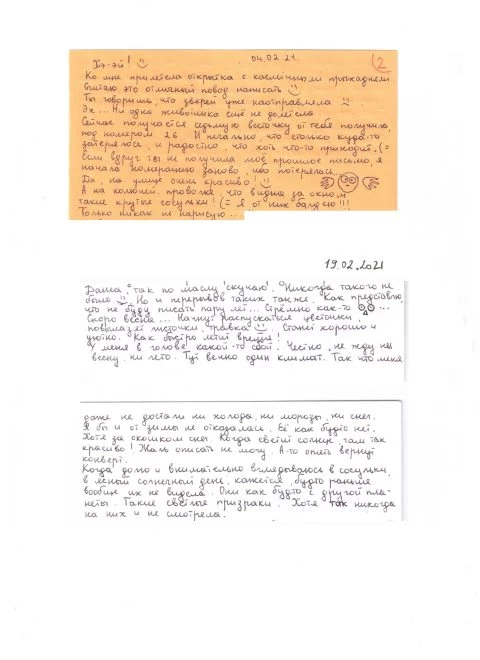 Хэ-эй!
04.02.21.
2
Ко мне прилетела открытка с космічными прыхаднем.
Считаю это отличный повод написать
Ты говоришь, что зверей уже наотправляла
Эх... Ни одна животинка ещё не долетела.
Сейчас получается седьмую весточку от тебя получила,
под номером 26. И печально, что столько куда-то
затерялось, и радостно, что хоть что-то приходит. (=
Если вдруг ты не получила моё прошлое письмо, я
начала нумерацию заново, ибо потерялась.
Да, на улице очень красиво!
А на колючей проволке, что видна за окном
такие крутые сосульки! (= Я от них балдею!!!
Только никак не нарисую...
19.02.2021
Даша, так по маслу скучаю. Никогда такого не
было. Но и перерывов таких также. Как представлю,
что не буду писать пару лет... Стрёмно как-то ...
Скоро весна... Начнут распускаться цветочки,
повылазят листочки, травка. Станет хорошо и
уютно. Как быстро летит время!
У меня в голове какой-то свой. Честно, не жду ни
весну, ни лето. Тут вечно один климат. Так что меня
даже не достали ни холода, ни морозы, ни снег.
Я бы и от зимы не отказалась. Её как будто нет.
Хотя за окошком снег. Когда светит солнце, там так
красиво! Жаль описать не могу. А-то опять вернут
конверт.
Когда долго и внимательно вглядываюсь в сосульки,
в ясный солнечный день, кажется, будто раньше
вообще их не видела. Они как будто с другой пла-
неты. Такие светлые призраки. Хотя так никогда
на них и не смотрела.